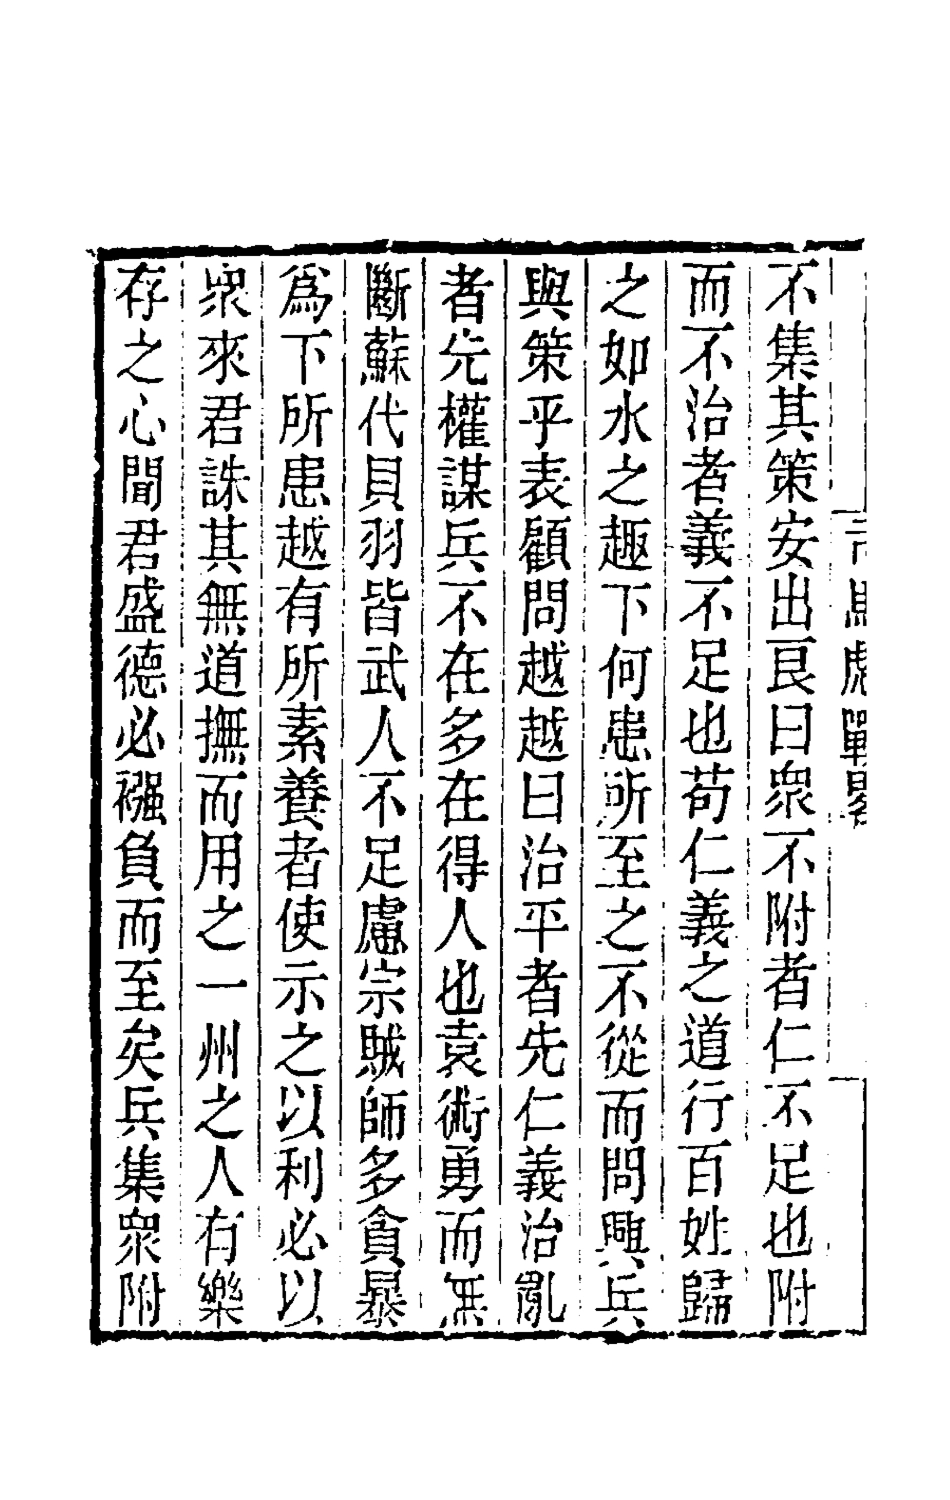 司馬彪戰畧
不集其策安出艮曰衆不附者仁不足也附
而不治者義不足也苟仁義之道行百姓歸
之如水之趣下何患所至之不從而問興兵
與策乎表顧問越越曰治平者先仁義治亂
者先權謀兵不在多在得人也袁術勇而無
斷蘇代貝羽皆武人不足慮宗賊師多貪暴
爲下所患越有所素養者使示之以利必以
衆來君誅其無道撫而用之一州之人有樂
存之心聞君盛德必襁負而至矣兵集衆附